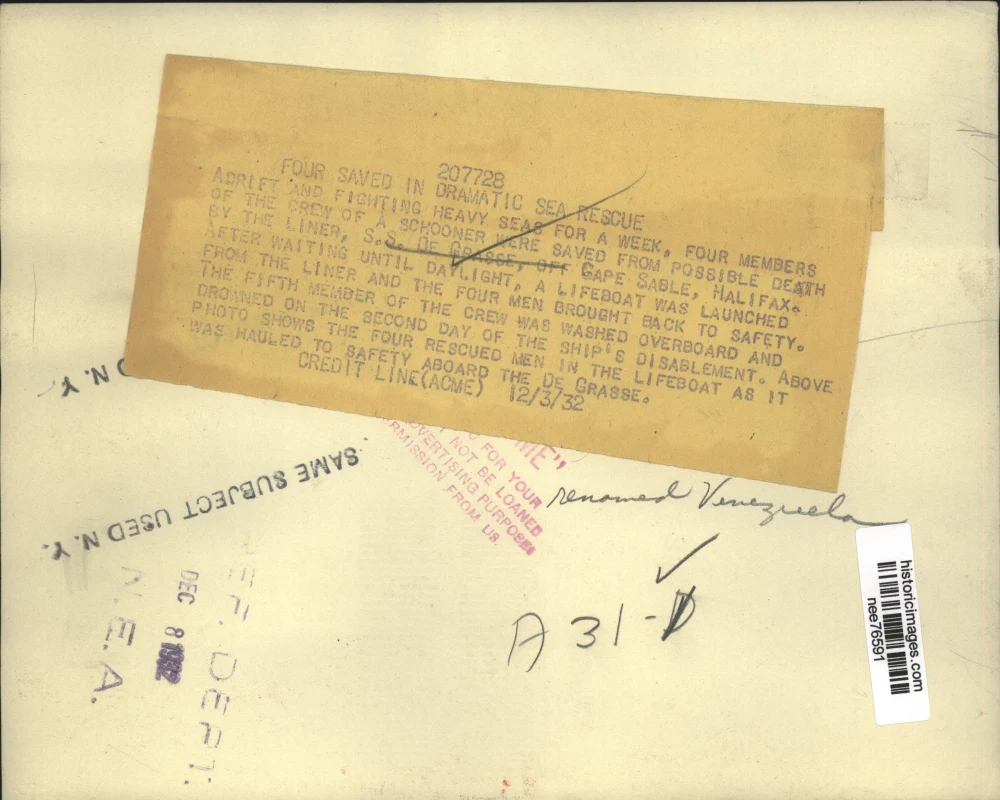 207728
FOUR SAVED IN DRAMATIC SEA RESCUE
ADRIFT AND FIGHTING HEAVY SEAS FOR A WEEK, FOUR MEMBERS
OF THE CREW OF A SCHOONER WERE SAVED FROM POSSIBLE DEATH
BY THE LINER, S.S. DE GRASSE, OFF CAPE SABLE, HALIFAX.
AFTER WAITING UNTIL DAYLIGHT, A LIFEBOAT WAS LAUNCHED
FROM THE LINER AND THE FOUR MEN BROUGHT BACK TO SAFETY.
THE FIFTH MEMBER OF THE CREW WAS WASHED OVERBOARD AND
DROWNED ON THE SECOND DAY OF THE SHIP'S DISABLEMENT. ABOVE
PHOTO SHOWS THE FOUR RESCUED MEN IN THE LIFEBOAT AS IT
WAS HAULED TO SAFETY ABOARD THE DE GRASSE.
CREDIT LINE (ACME) 12/3/32
D N.Y.
FOR YOUR
NOT BE LOANED
ADVERTISING PURPOSES
PERMISSION FROM US.
renamed Venezuela
SAME SUBJECT USED N.Y.
A 31-D
REF. DEPT.
DEC 8 1932
N.E.A.
historicimages.com
nee76591